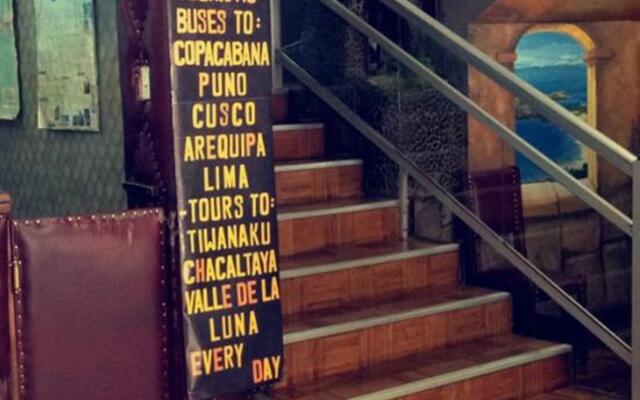 BUSES TO:
COPACABANA
PUNO
CUSCO
AREQUIPA
LIMA
-TOURS TO:
TIWANAKU
CHACALTAYA
VALLE DE LA
LUNA
EVERY DAY